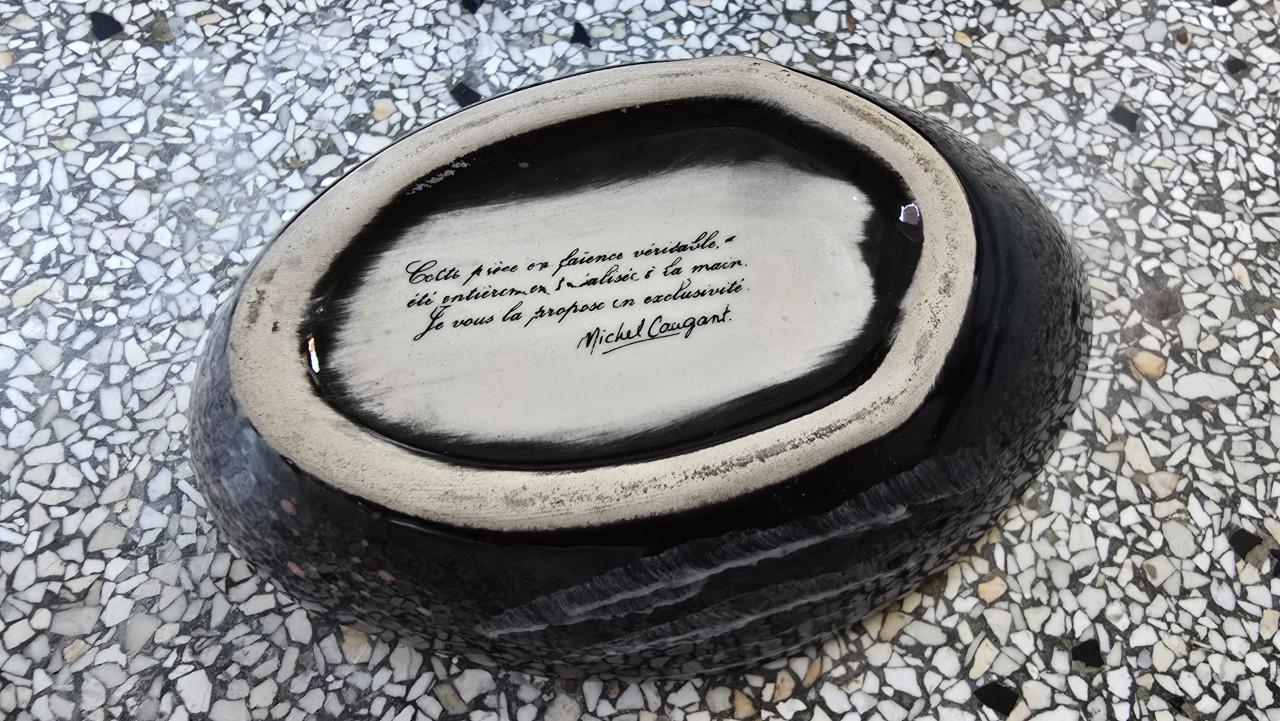 Cette pièce en faience véritable, a
été entièrement réalisée à la main.
Je vous la propose en exclusivité.
Michel Caugant.